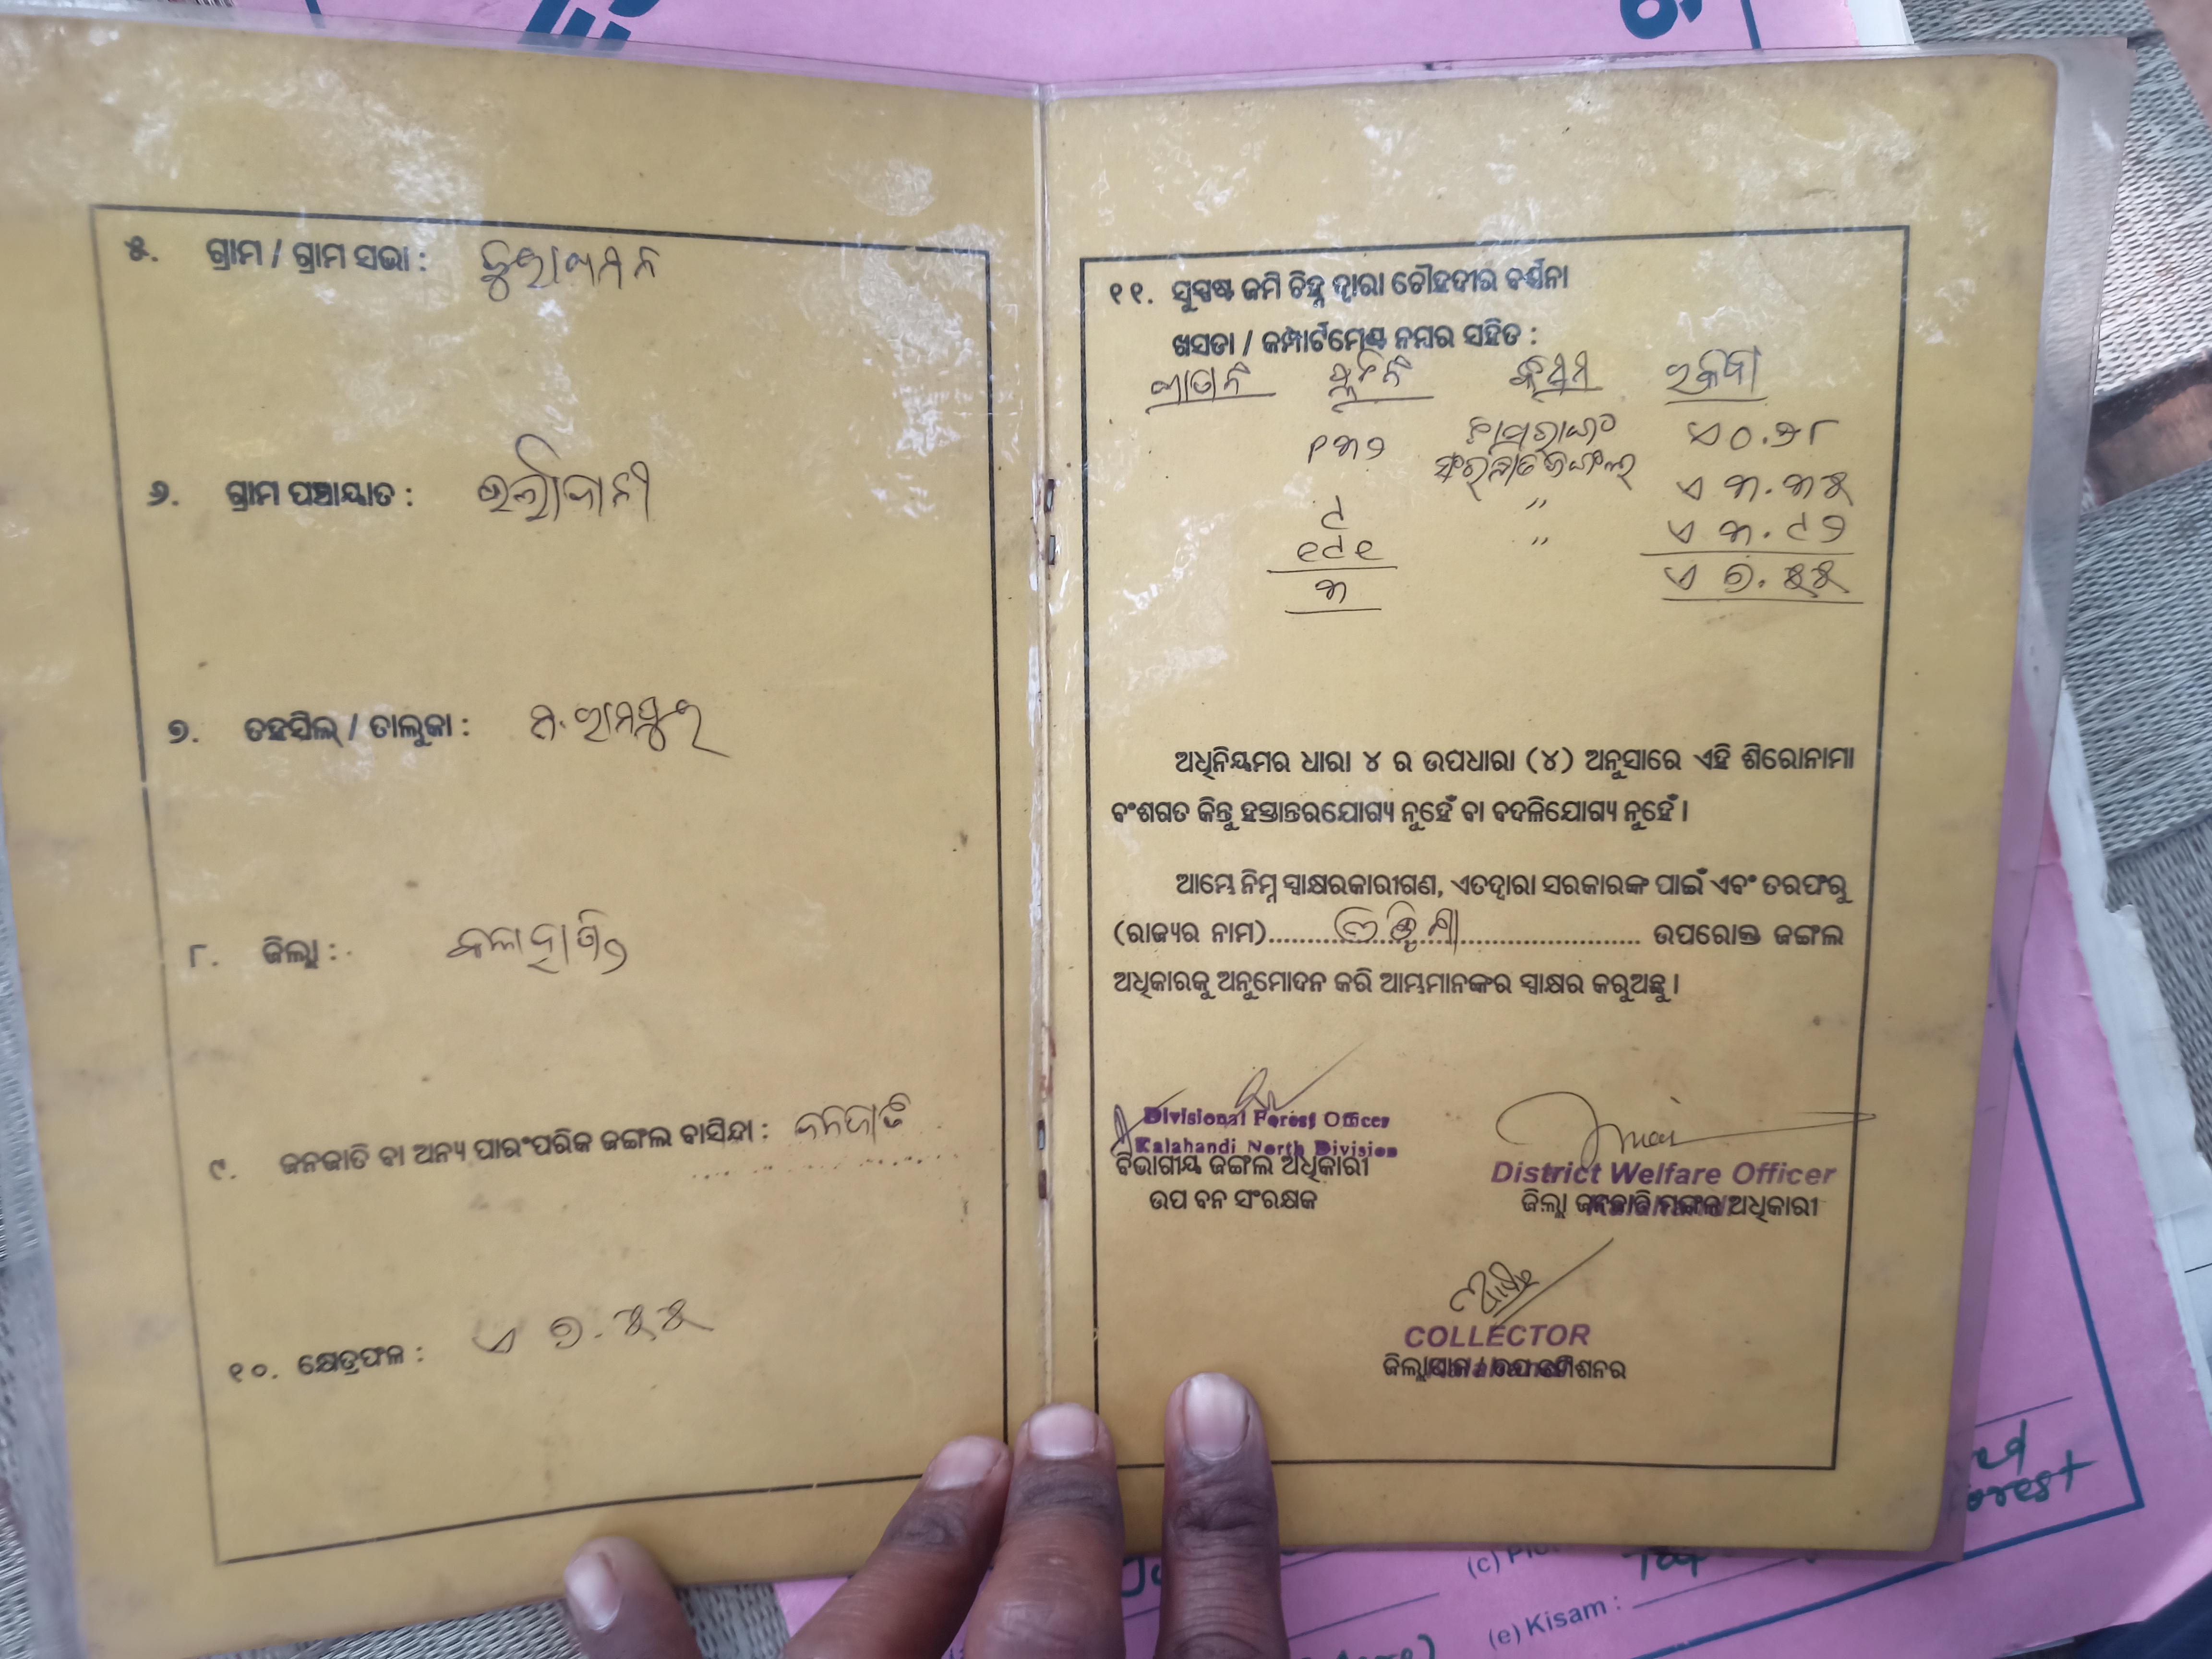 ୫. ଗ୍ରାମ / ଗ୍ରାମ ସଭା :
୬. ଗ୍ରାମ ପଞ୍ଚାୟାତ :
୭. ତହସିଲ୍ / ତାଲୁକା : ମ. ରାମପୁର
୮. ଜିଲ୍ଲା : କଳାହାଣ୍ଡି
୯. ଜନଜାତି ବା ଅନ୍ୟ ପାରଂପରିକ ଜଙ୍ଗଲ ବାସିନ୍ଦା : ଜନଜାତି
୧୦. କ୍ଷେତ୍ରଫଳ : ଏ ୭.୫୫
୧୧. ସୁସ୍ପଷ୍ଟ ଜମି ଚିହ୍ନ ଦ୍ୱାରା ଚୌହଦୀର ବର୍ଣ୍ଣନା
ଖସଡା / କମ୍ପାର୍ଟମେଣ୍ଟ ନମ୍ବର ସହିତ :
ଖାତା ନଂ ପ୍ଲଟ ନଂ କିସମ ରକବା
୧୩୨ ଏ ୦.୨୮
ଜଙ୍ଗଲ ଏ ୩.୩୫
୯ " ଏ ୩.୯୨
୧୯୧ "
୩ ଏ ୭.୫୫
ଅଧିନିୟମର ଧାରା ୪ ର ଉପଧାରା (୪) ଅନୁସାରେ ଏହି ଶିରୋନାମା
ବଂଶଗତ କିନ୍ତୁ ହସ୍ତାନ୍ତରଯୋଗ୍ୟ ନୁହେଁ ବା ବଦଳିଯୋଗ୍ୟ ନୁହେଁ ।
ଆମ୍ଭେ ନିମ୍ନ ସ୍ୱାକ୍ଷରକାରୀଗଣ, ଏତଦ୍ୱାରା ସରକାରଙ୍କ ପାଇଁ ଏବଂ ତରଫରୁ
(ରାଜ୍ୟର ନାମ)....ଓଡ଼ିଶା.... ଉପରୋକ୍ତ ଜଙ୍ଗଲ
ଅଧିକାରକୁ ଅନୁମୋଦନ କରି ଆମ୍ଭମାନଙ୍କର ସ୍ୱାକ୍ଷର କରୁଅଛୁ ।
Divisional Forest Officer
Kalahandi North Division
ବିଭାଗୀୟ ଜଙ୍ଗଲ ଅଧିକାରୀ
ଉପ ବନ ସଂରକ୍ଷକ
District Welfare Officer
ଜିଲ୍ଲା ଜନଜାତି ମଙ୍ଗଳ ଅଧିକାରୀ
COLLECTOR
ଜିଲ୍ଲାପାଳ / ଉପ କମିଶନର
(e) Kisam :